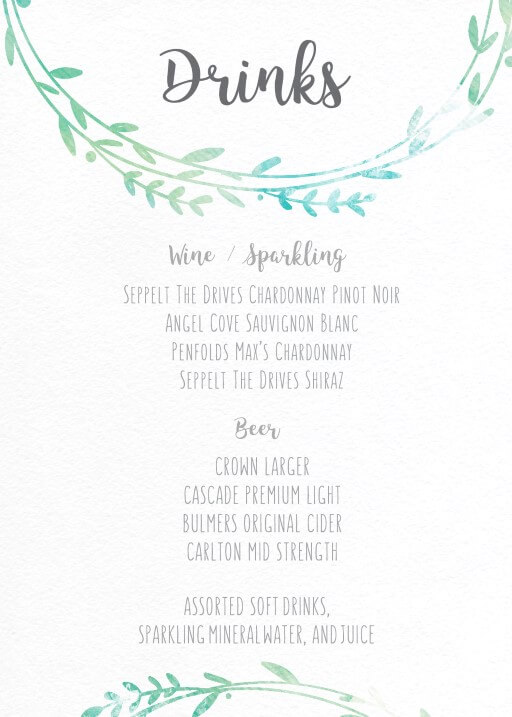 Drinks
Wine / Sparkling
Seppelt The Drives Chardonnay Pinot Noir
Angel Cove Sauvignon Blanc
Penfolds Max's Chardonnay
Seppelt The Drives Shiraz
Beer
CROWN LARGER
CASCADE PREMIUM LIGHT
BULMERS ORIGINAL CIDER
CARLTON MID STRENGTH
ASSORTED SOFT DRINKS,
SPARKLING MINERAL WATER, AND JUICE